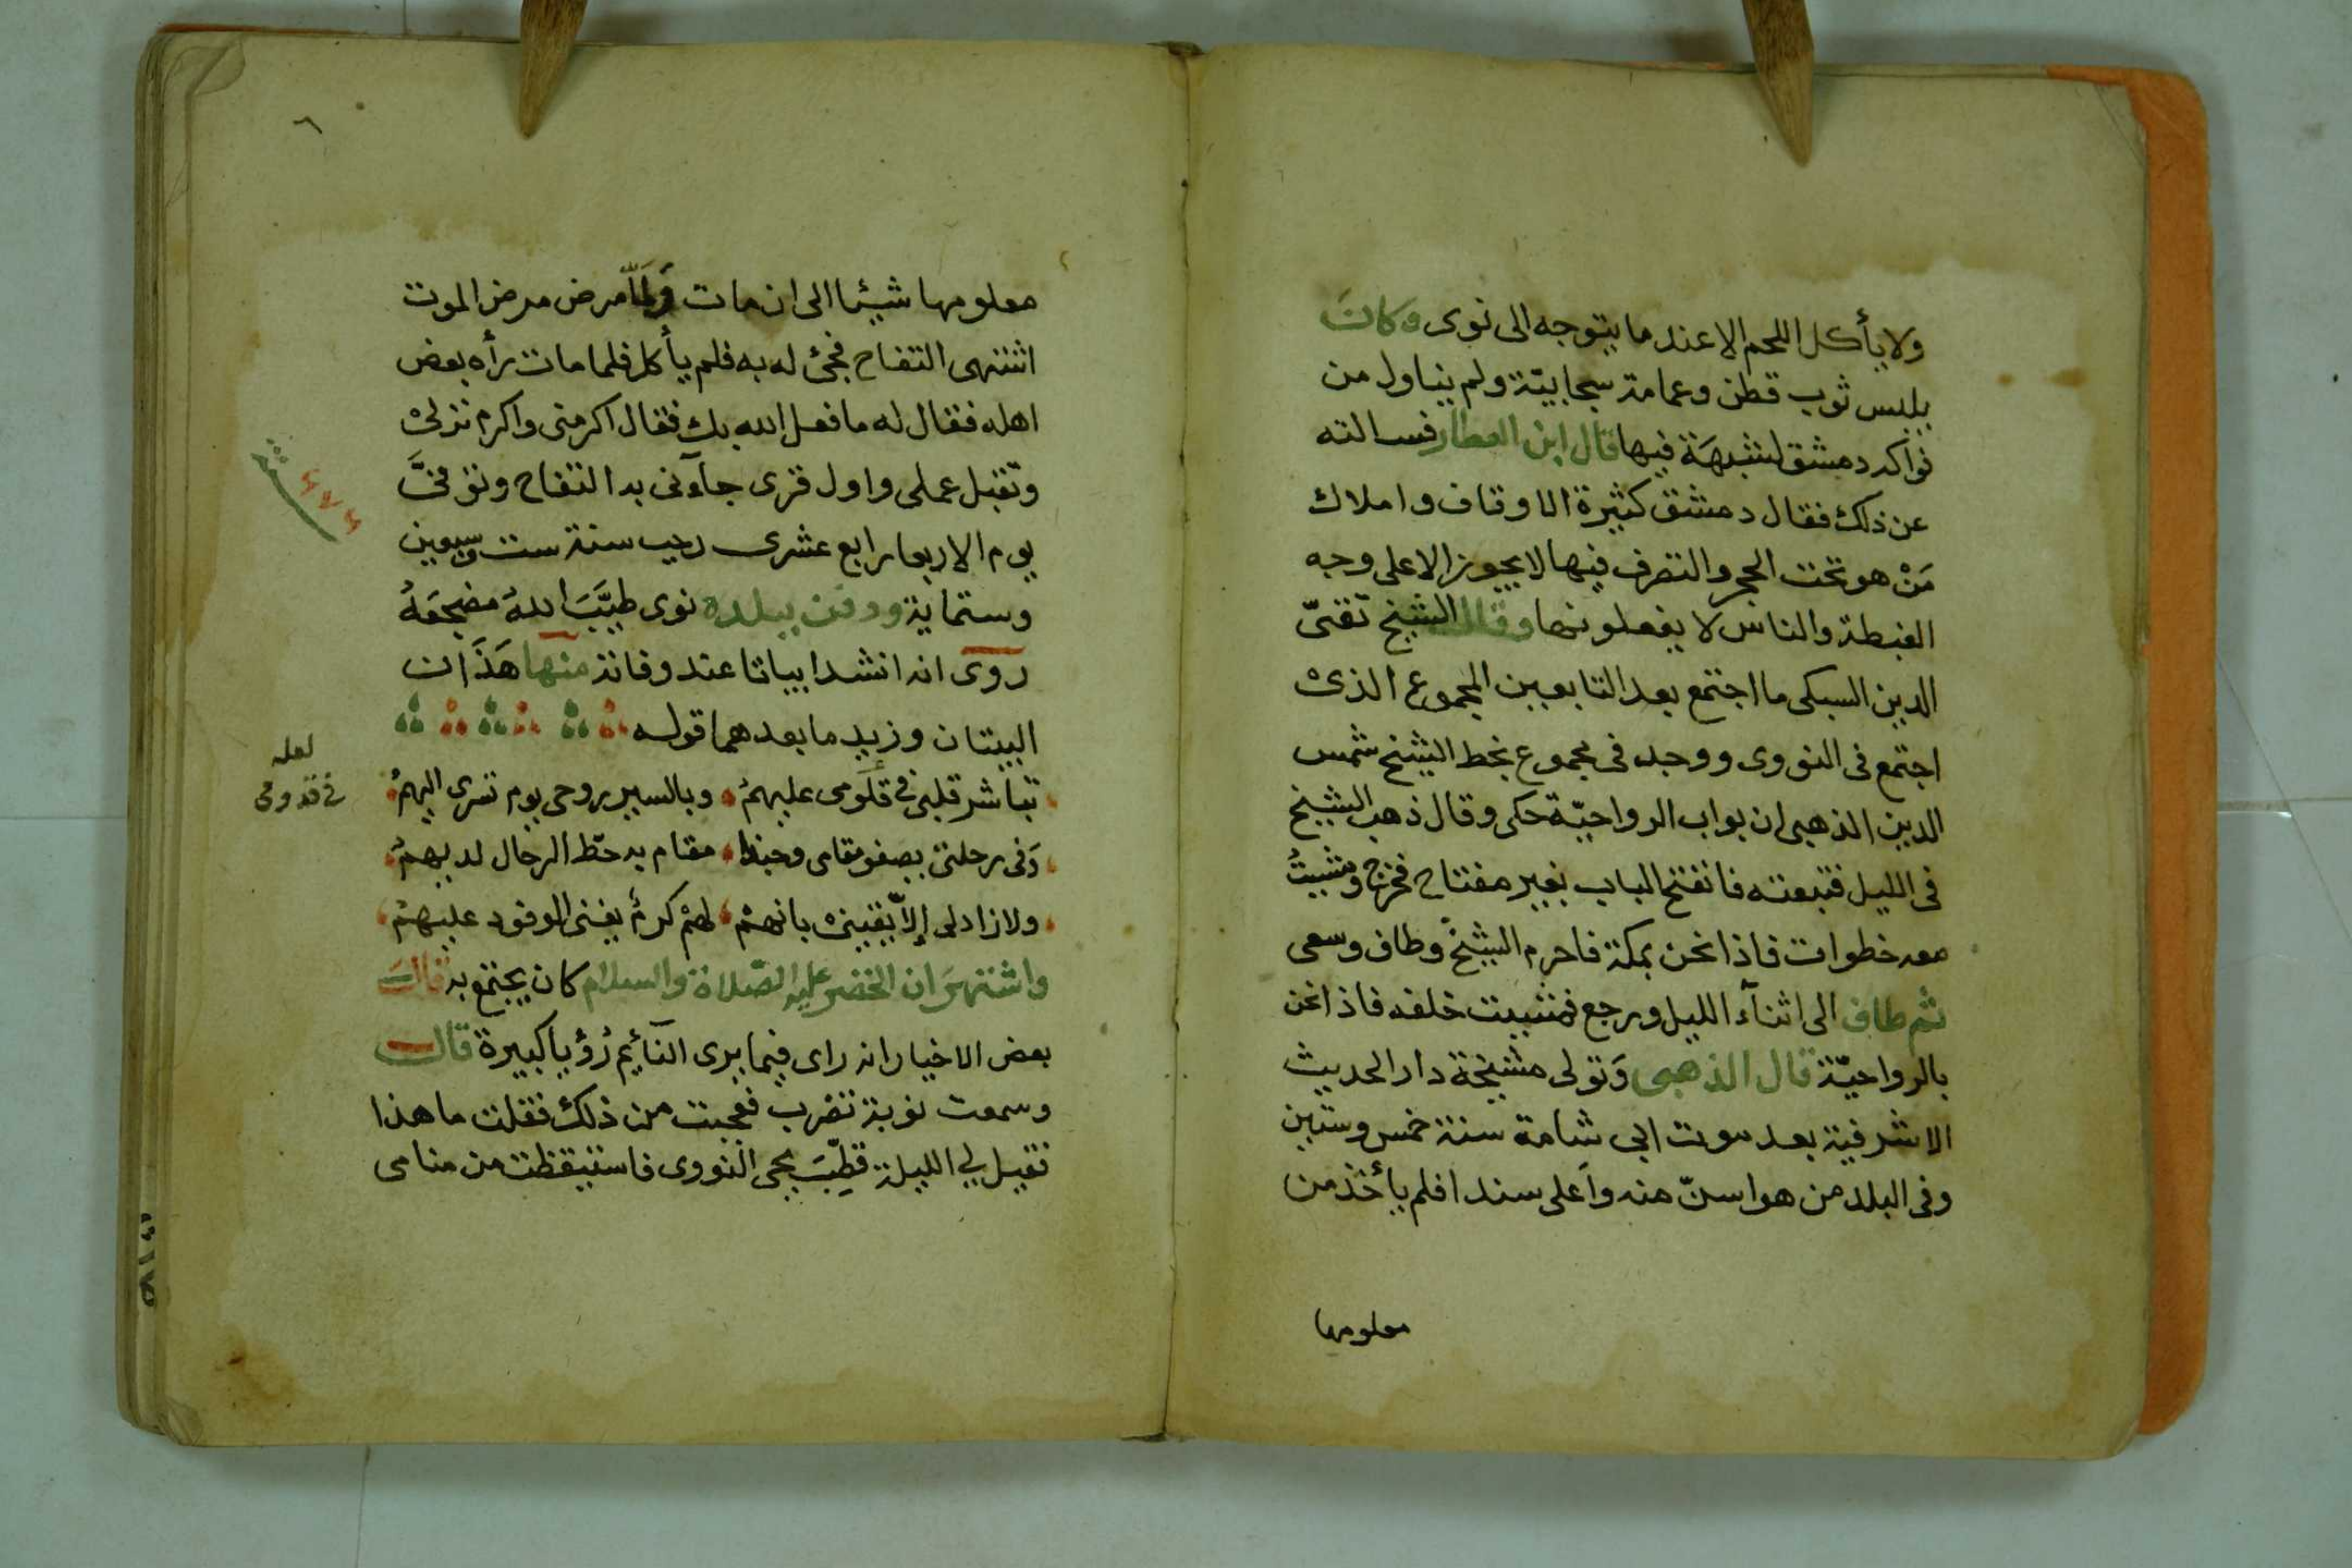 ولا يأكل اللحم الا عند ما يتوجه الى نوى وكان
يلبس ثوب قطن وعمامة سجابيّة ولم يتناول من
فواكه دمشق لشبهَة فيها قال ابن العطار فسالته
عن ذلك فقال دمشق كثيرة الاوقاف واملاك
مَنْ هو تحت الحجر والتصرف فيها لا يجوز الا على وجه
الغبطة والناس لا يفعلونها وقال الشيخ تقىّ
الدين السبكى ما اجتمع بعد التابعين المجموع الذى
اجتمع فى النووى ووجد فى مجموع بخط الشيخ شمس
الدين الذهبى ان بواب الرواحيّة حكى وقال ذهب الشيخ
فى الليل فتبعته فانفتح الباب بغير مفتاح فخرج ومشيتُ
معه خطوات فاذا نحن بمكة فاحرم الشيخ وطاف وسعى
ثم طاف الى اثنآء الليل ورجع فمشيت خلفه فاذا نحن
بالرواحيّة قال الذهبى وَتولى مشيخة دار الحديث
الاشرفية بعد موت ابى شامة سنة خمس وستين
وفى البلد من هو اسنّ منه وأعلى سندا فلم يأخذ من
معلومها
٦
معلومها شيئا الى ان مات وَلمَّا مرض مرض الموت
اشتهى التفاح فجئ له به فلم يأكل فلما مات رأه بعض
اهله فقال له ما فعل الله بك فقال اكرمنى واكرم نزلى
وتقبل عملى واول قرى جآءنى به التفاح وتوفىَّ
يوم الاربعا رابع عشرى رجب سنة ست وسبعين
وستماية ودفن ببلده نوى طيَّبَ اللهُ مضجعَهُ
روى انه انشد ابياتا عند وفاته منها هَذَان
البيتان وزيد ما بعدهما قوله
تباشر قلبى فى قلومى عليهمُ وبالسير روحى يوم تسرى اليهمُ
وَفى رحلتى يصفو مقامى وحبذا مقام به حطّ الرحال لديهمُ
ولا زاد لى إلاّ يقينى بانهمْ لهمْ كرمٌ يغنى الوفود عليهمُ
واشتهرَ ان الخضر عليه الصّلاة والسلام كان يجتمع به قال
بعض الاخيار انه راى فيما يرى النآئيم رُؤيا كبيرة قال
وسمعت نوبة تضرب فعجبت من ذلك فقلت ما هذا
فقيل لي الليلة قطِّبَ يحيى النووى فاستيقظت من منامى
٦٧٦
لعله
فى قدومى